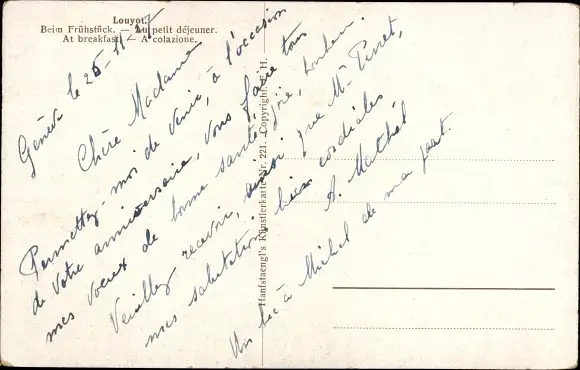 Louyot.
Beim Frühstück. — Au petit déjeuner.
At breakfast. — A colazione.
Hanfstaengl's Künstlerkarte Nr. 221. Copyright F. H.
Genève le 25-11-27
Chère Madame
Permettez-moi de venir, à l'occasion
de votre anniversaire, vous faire tous
mes voeux de bonne santé, joie, bonheur.
Veuillez recevoir, ainsi que Mr Pinet,
mes salutations bien cordiales
A. Mathil
Un bec à Michel de ma part.